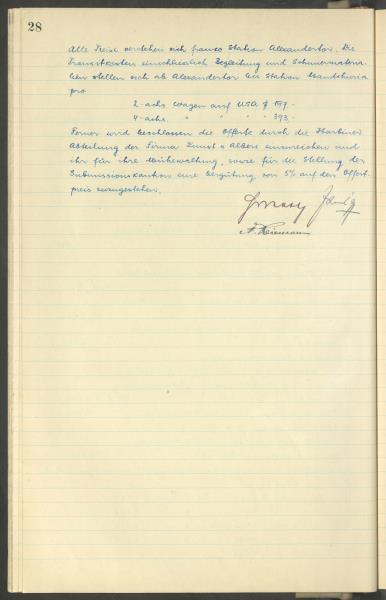 28
Alle Preise verstehen sich franco Station Alexandertor. Die
Transitkosten einschliesslich Begleitung und Schmiermateria-
lien stellen sich ab Alexandertor bis Station Mandschuria
pro
2-achs. Wagen auf USA $ 197.-
4-achs. " " " " 393.-
Ferner wird beschlossen die Offerte durch die Harbiner
Abteilung der Firma Kunst & Albers einzureichen und
ihr für ihre Mühewaltung, sowie für die Stellung der
Submissionskaution eine Vergütung von 5% auf den Offert-
preis zuzugestehen.